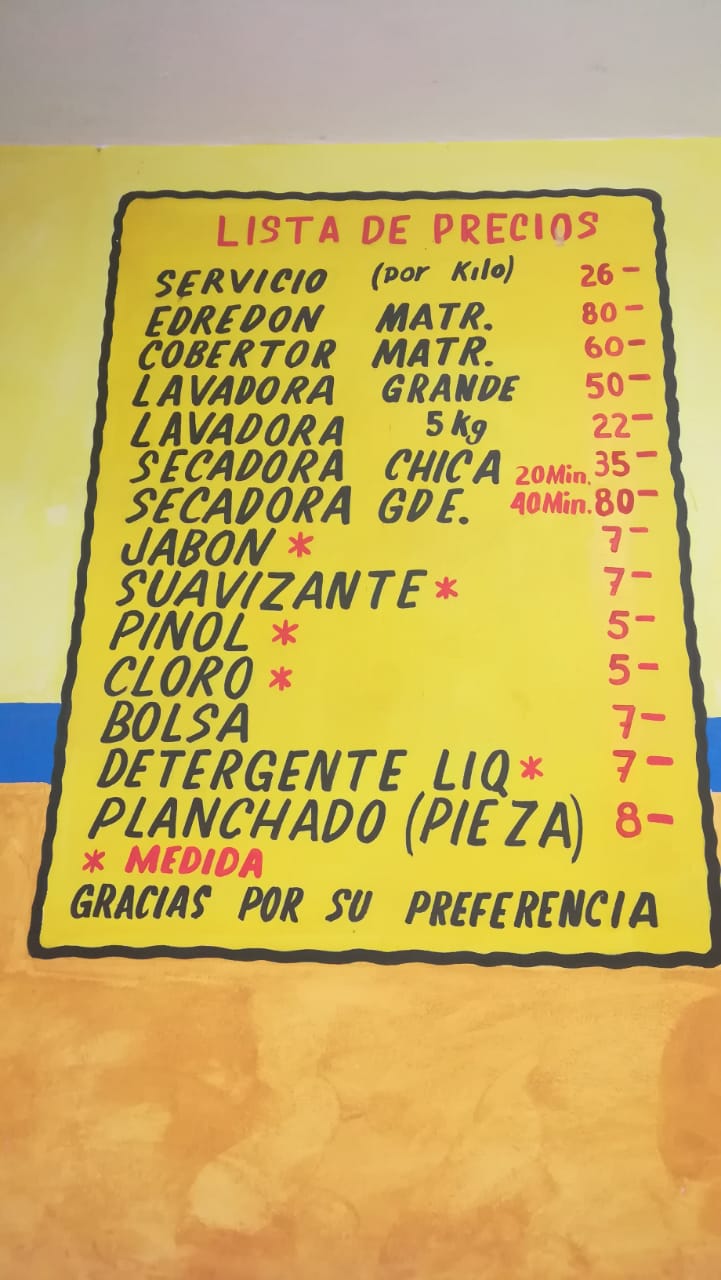 LISTA DE PRECIOS
SERVICIO (por Kilo) 26-
EDREDON MATR. 80-
COBERTOR MATR. 60-
LAVADORA GRANDE 50-
LAVADORA 5 kg 22-
SECADORA CHICA 20Min. 35-
SECADORA GDE. 40Min. 80-
JABON * 7-
SUAVIZANTE * 7-
PINOL * 5-
CLORO * 5-
BOLSA 7-
DETERGENTE LIQ * 7-
PLANCHADO (PIEZA) 8-
* MEDIDA
GRACIAS POR SU PREFERENCIA